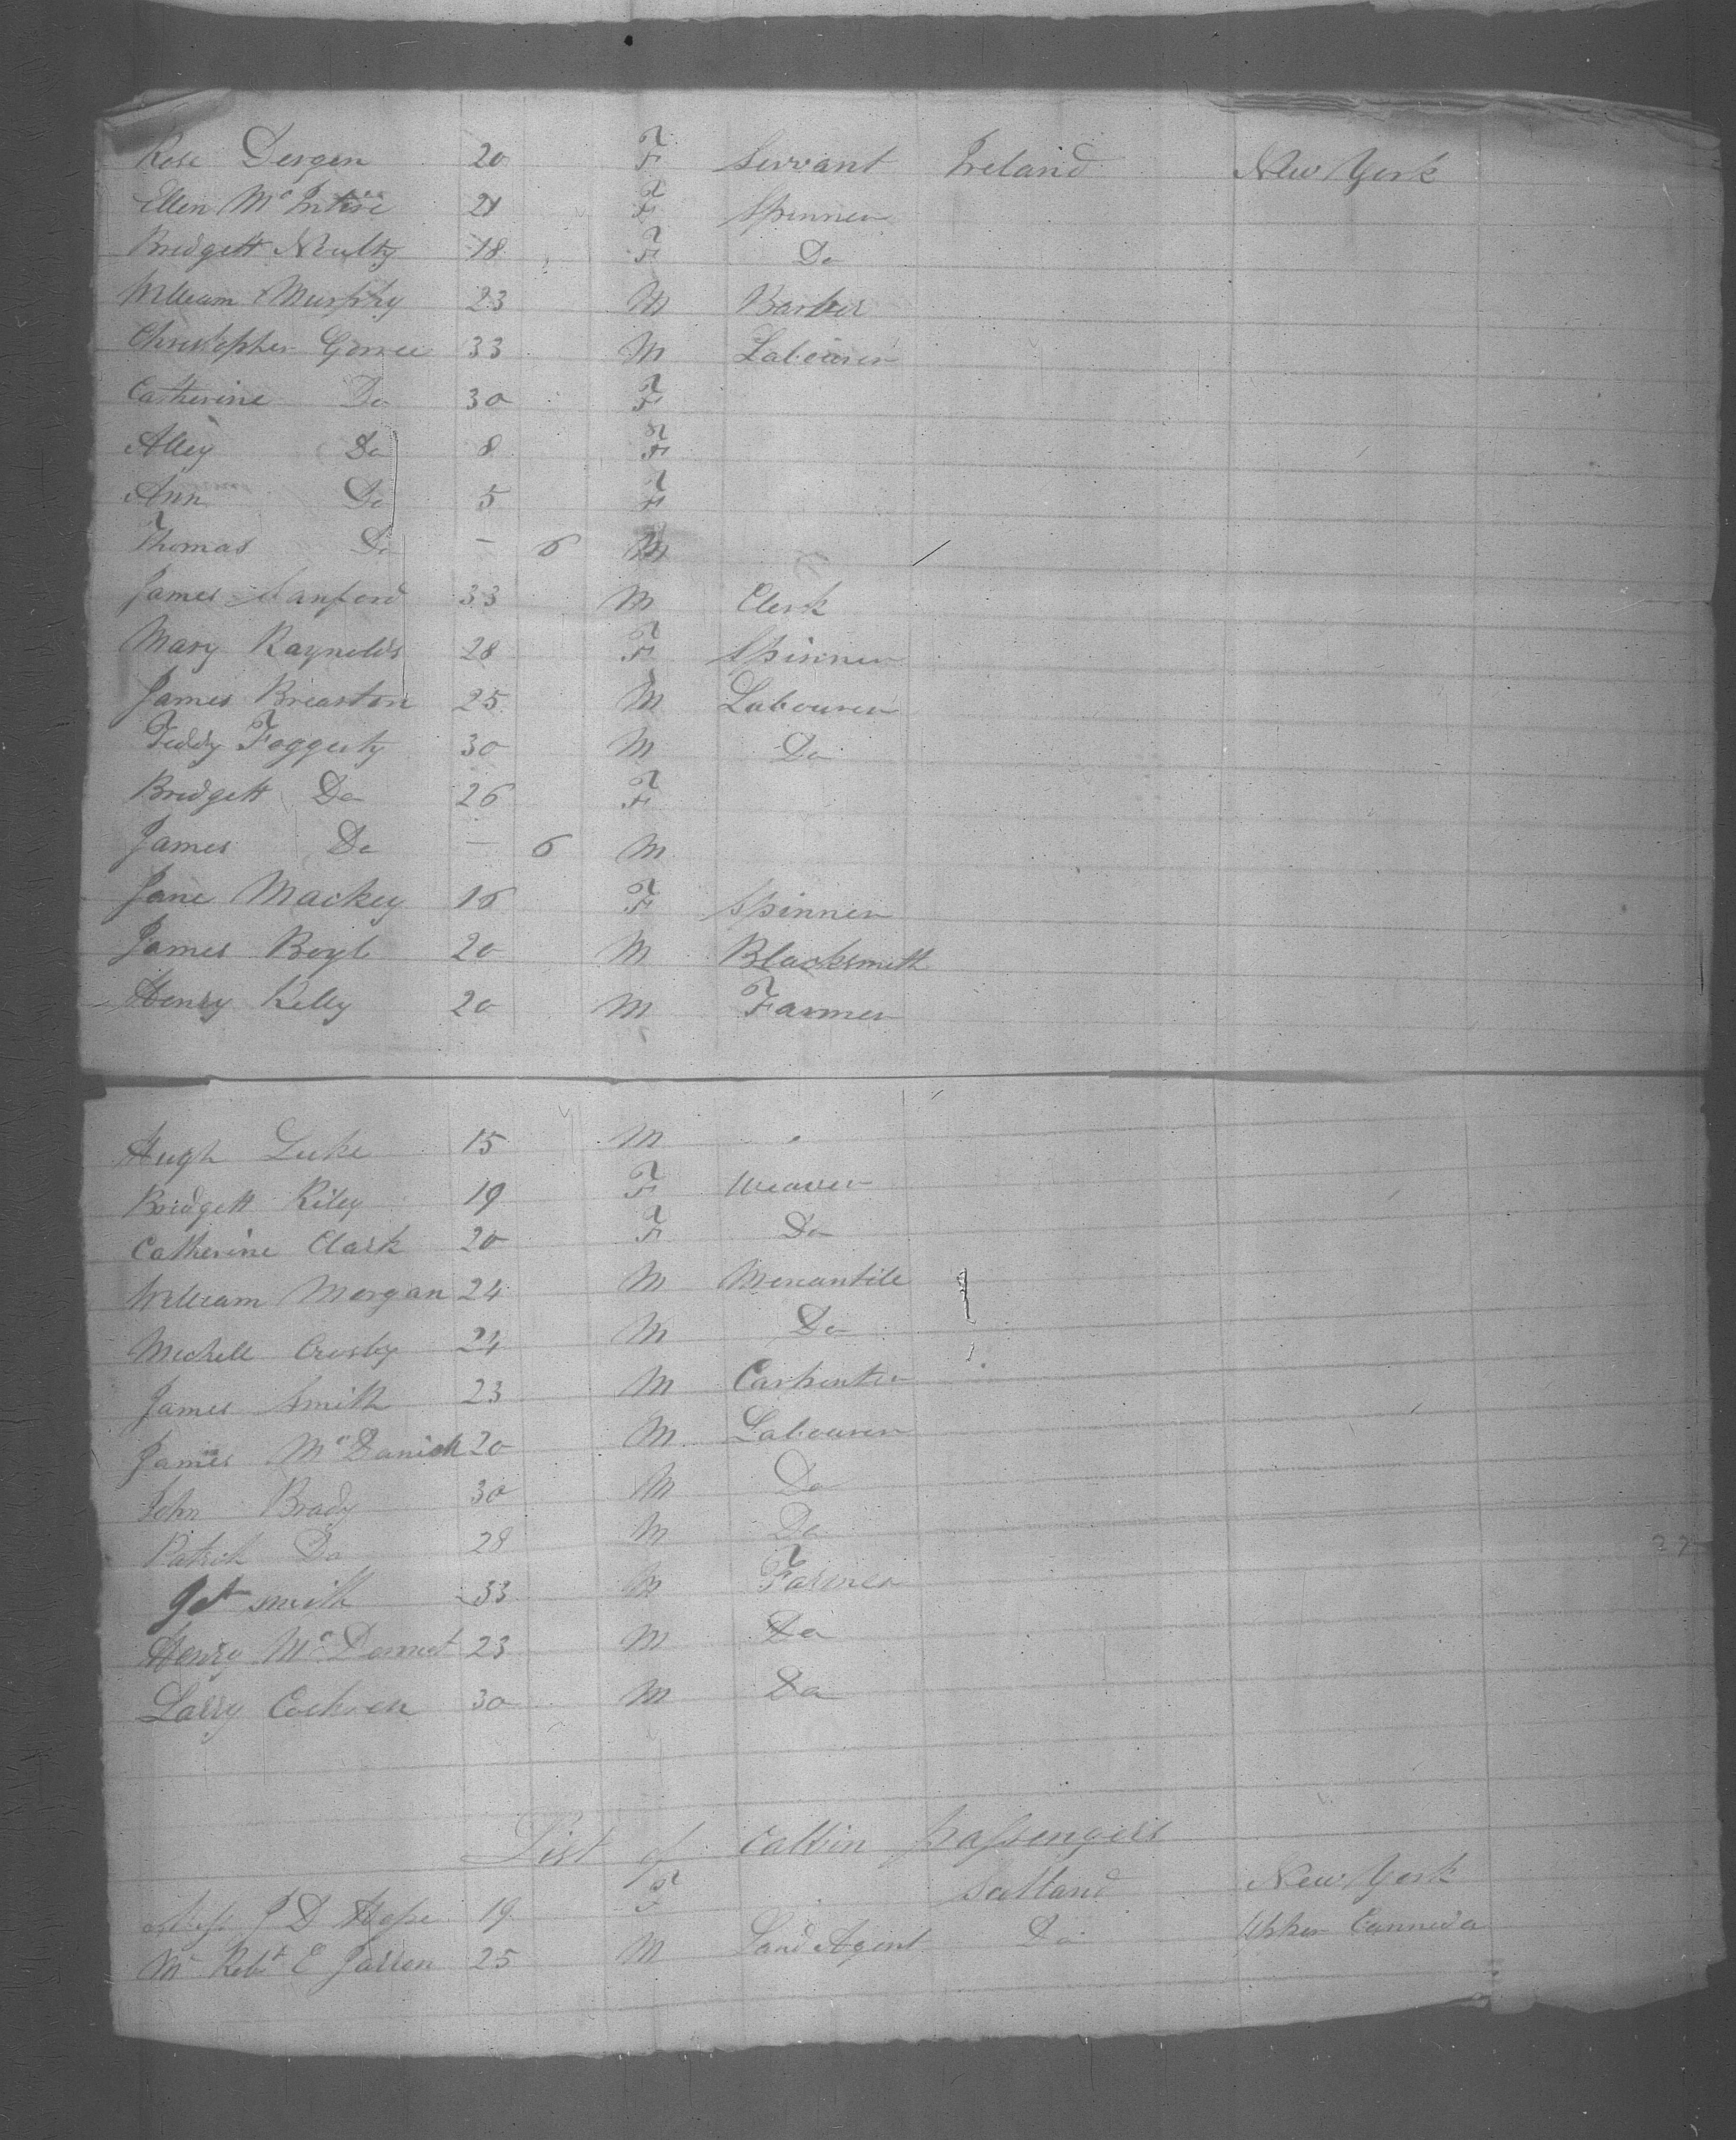 Rose Dergen 20 F Servant Ireland New York
Ellen McIntire 21 F Spinner
Bridgett Nulty 18 F Do
William Murphy 23 M Barber
Christopher 33 M Labourer
Catherine Do 30 F
Alley Do 8 F
Ann Do 5 F
Thomas Do – 6 M
James Sanford 33 M Clerk
Mary Raynolds 28 F Spinner
James Breaston 25 M Labourer
Teddy Foggerty 30 M Do
Bridgett Do 26 F
James Do – 6 M
Jane Mackey 16 F Spinner
James Boyl 20 M Blacksmith
Henry Kelly 20 M Farmer
Hugh Luke 15 M
Bridgett Riley 19 F Weaver
Catherine Clark 20 F Do
William Morgan 24 M Mercantile
Michell Crosby 24 M Do
James Smith 23 M Carpenter
James McDaniell 20 M Labourer
John Brady 30 M Do
Patrick Do 28 M Do
smith 33 M Farmer
Henry McDermot 23 M Do
Larry Cochren 30 M Do
List of Cabbin passengers
Miss J D Hope 19 F Scotland New York
Mr Robt E 25 M Land Agent Do Upper Canneda